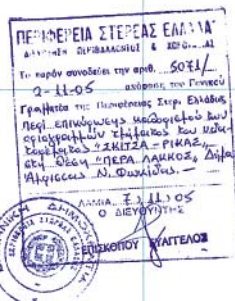 ΠΕΡΙΦΕΡΕΙΑ ΣΤΕΡΕΑΣ ΕΛΛΑΔΑΣ
ΠΕΡΙΒΑΛΛΟΝΤΟΣ &
Το παρόν συνοδεύει την αριθ. 5071/
2-11-05 απόφαση του Γενικού
Γραμματέα της Περιφέρειας Στερ. Ελλάδας
περί επικύρωσης καθορισμού των
οριογραμμών τμήματος του
"ΣΚΙΤΣΑ - ΡΙΚΑΣ",
στη θέση "ΠΕΡΑ ΛΑΚΚΟΣ", Δήμου
Άμφισσας Ν. Φωκίδας. -
ΛΑΜΙΑ 7/11/05
Ο ΔΙΕΥΘΥΝΤΗΣ
ΕΠΙΣΚΟΠΟΥ ΕΥΑΓΓΕΛΟΣ